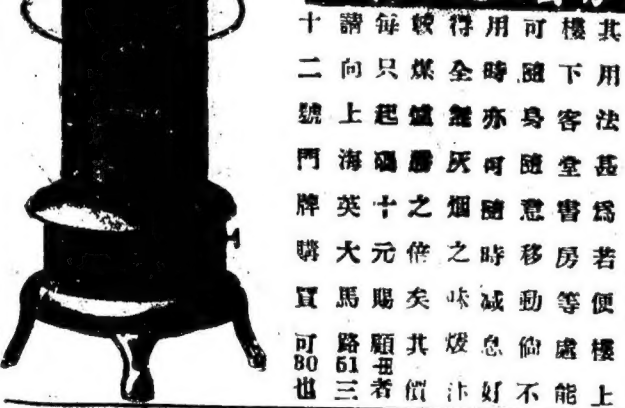 其用法甚爲若便樓上
樓下客堂書房等處能
可隨身隨意移動倘不
用時亦可隨時減息好
得全無灰烟之味
較煤爐勝之倍矣其價
每只起碼十元賜顧者
請向上海英大馬路51三
十二號門牌購買可80也